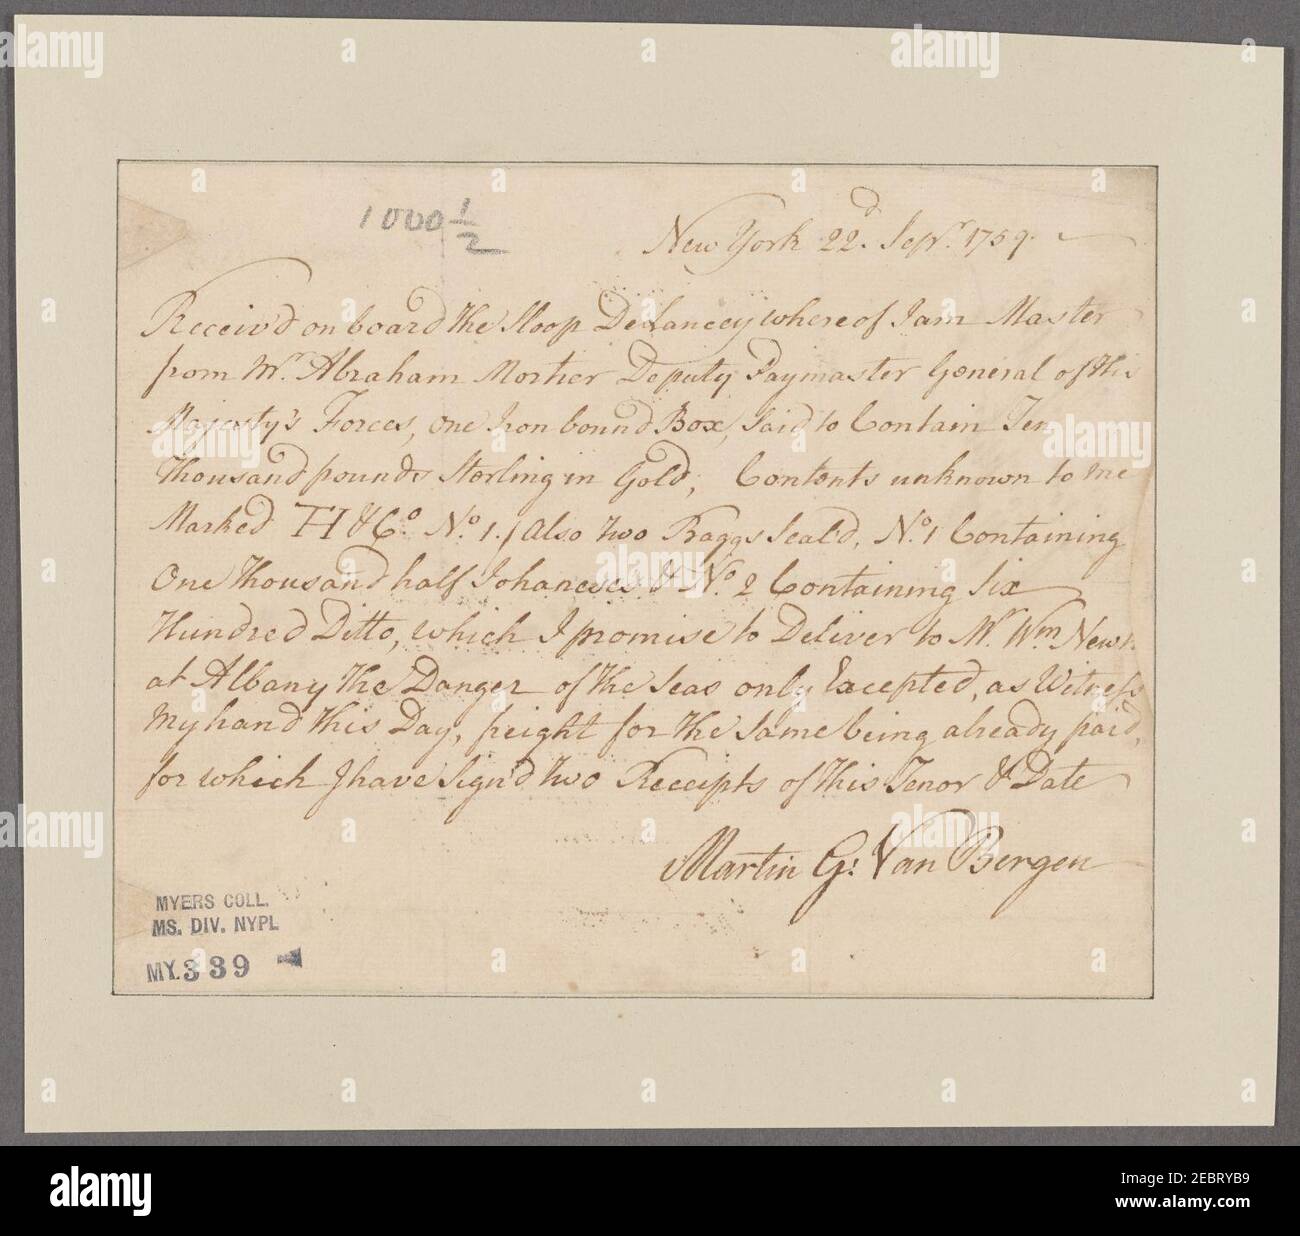 1000 1/2
New York 22d. Sepr. 1759.
Receiv'd on board the Sloop DeLancey whereof I am Master
from Mr. Abraham Mortier Deputy Paymaster General of His
Majesty's Forces, one Iron bound Box, Said to Contain Ten
thousand pounds Sterling in Gold, Contents unknown to me
Marked TH & Co. No. 1. / Also two Baggs Seal'd, No. 1 Containing
One thousand half Johaneses & No. 2 Containing Six
Hundred Ditto, which I promise to Deliver to Mr. Wm
at Albany the Danger of the Seas only Excepted, as Witness
My hand this Day, freight for the Same being already paid,
for which I have Sign'd two Receipts of this Tenor & Date
Martin G: Van Bergen
MYERS COLL.
MS. DIV. NYPL
MY.339
alamy
Image ID: 2EBRYB9
www.alamy.com